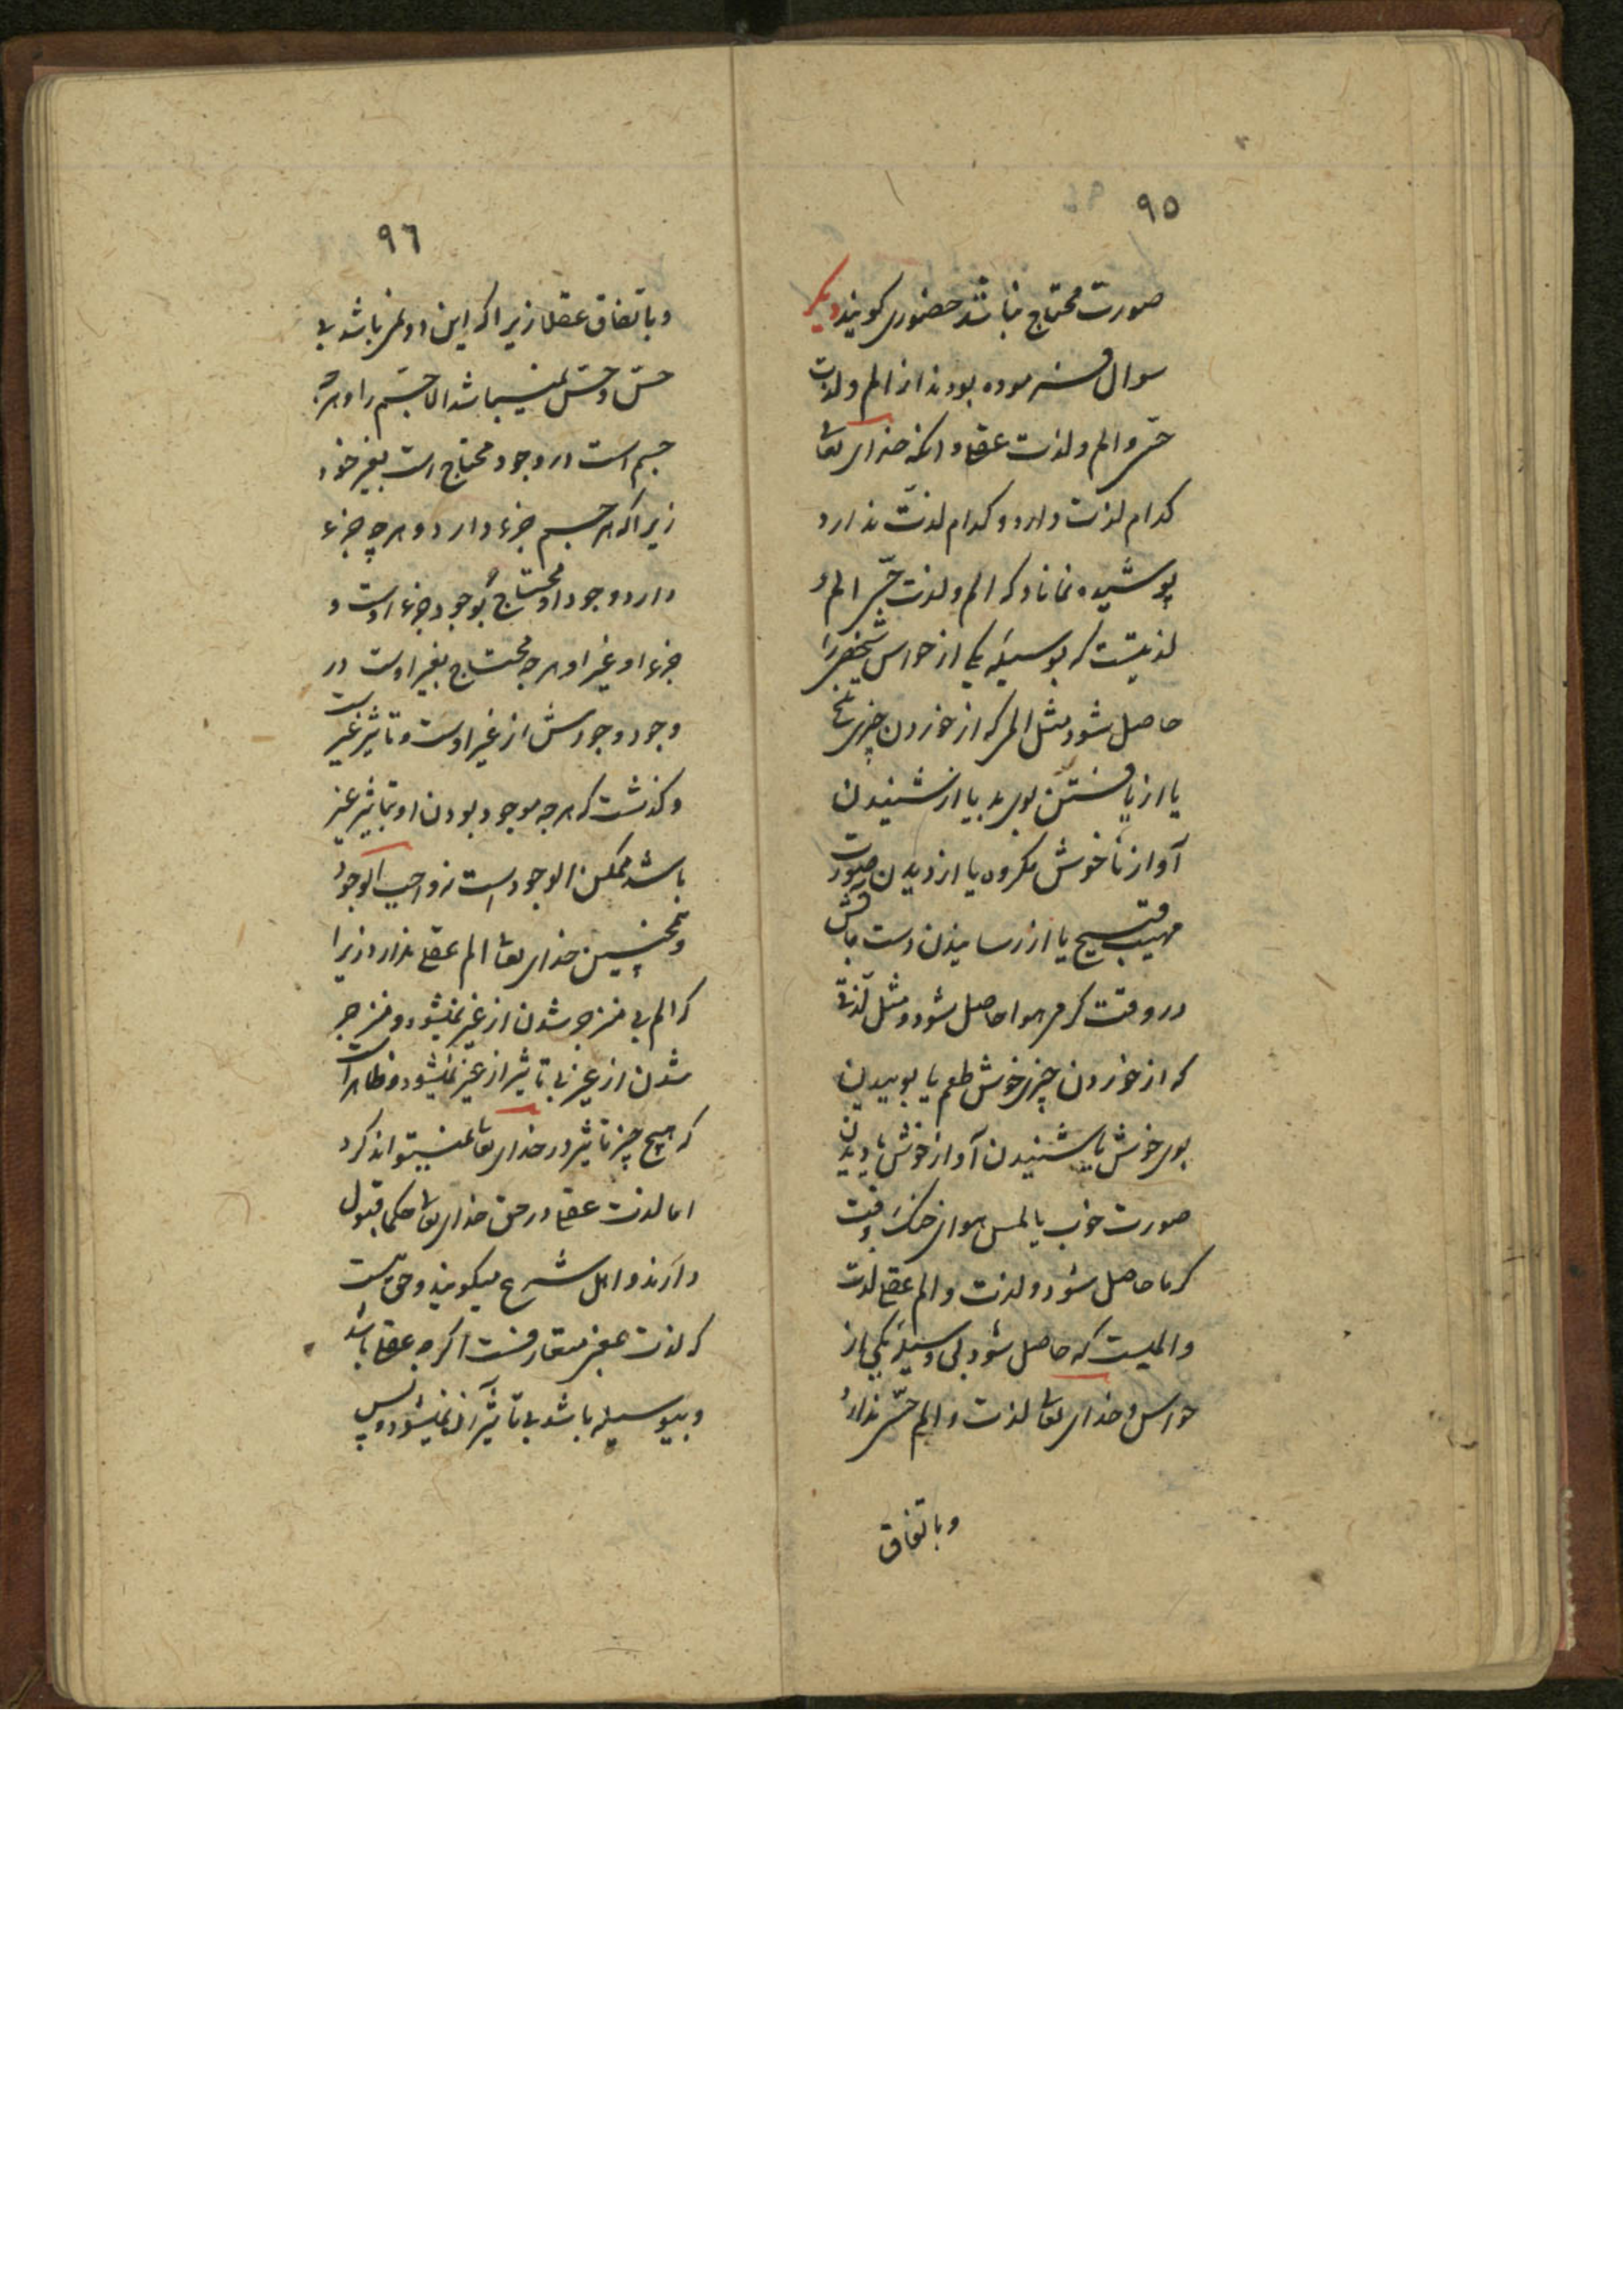 ۹۵
صورت محتاج نباشد حضوری کویند دیکر
سوال فرموده بودند از الم و لذت
حسی و الم و لذت عقلی و انکه خدای تعالی
کدام لذت دارد و کدام لذت ندارد
پوشیده نماناد که الم و لذت حسی الم و
لذتیست که بوسیله یکی از حواس شخص را
حاصل شود مثل المی که از خوردن چیزی تلخ
یا از یافتن بوی بد یا از شنیدن
آواز ناخوش مکروه یا از دیدن صورت
مهیب قبیح یا از رسانیدن دست باتش
در وقت کرمی هوا حاصل شود و مثل لذتی
که از خوردن چیزی خوش طعم یا بوییدن
بوی خوش یا شنیدن آواز خوش یا دیدن
صورت خوب یا لمس هوای خنک در وقت
کرما حاصل شود و لذت و الم عقلی لذت
و المیست که حاصل شود بی وسیله یکی از
حواس و خدای تعالی لذت و الم حسی ندارد
وباتفاق
۹۶
و باتفاق عقلا زیرا که این دو نمی باشد بی
حس و حس نمیباشد الا جسم را و هرچه
جسم است در وجود محتاج است بغیر خود
زیرا که هر جسم جزء دارد و هر چه جزء
دارد وجود او محتاج بوجود جزء اوست و
جزء او غیر او و هرچه محتاج بغیر اوست در
وجود وجودش از غیر اوست و تاثیر غیریست
و کذشت که هرچه موجود بودن او بتاثیر غیر
باشد ممکن الوجود است نه واجب الوجود
و همچنین خدای تعالی الم عقلی ندارد زیرا
که الم بی منزجر شدن از غیر نمیشود و منزجر
شدن از غیر بی تاثیر از غیر نمیشود و ظاهر است
که هیچ چیز تاثیر در خدای تعالی نمیتواند کرد
اما لذت عقلی در حق خدای تعالی حکما قبول
دارند و اهل شرع میکویند و حق است
که لذت بمعنی متعارفست اکرچه عقلی باشد
و بیوسیله باشد بی تاثیر آن نمیشود و پس